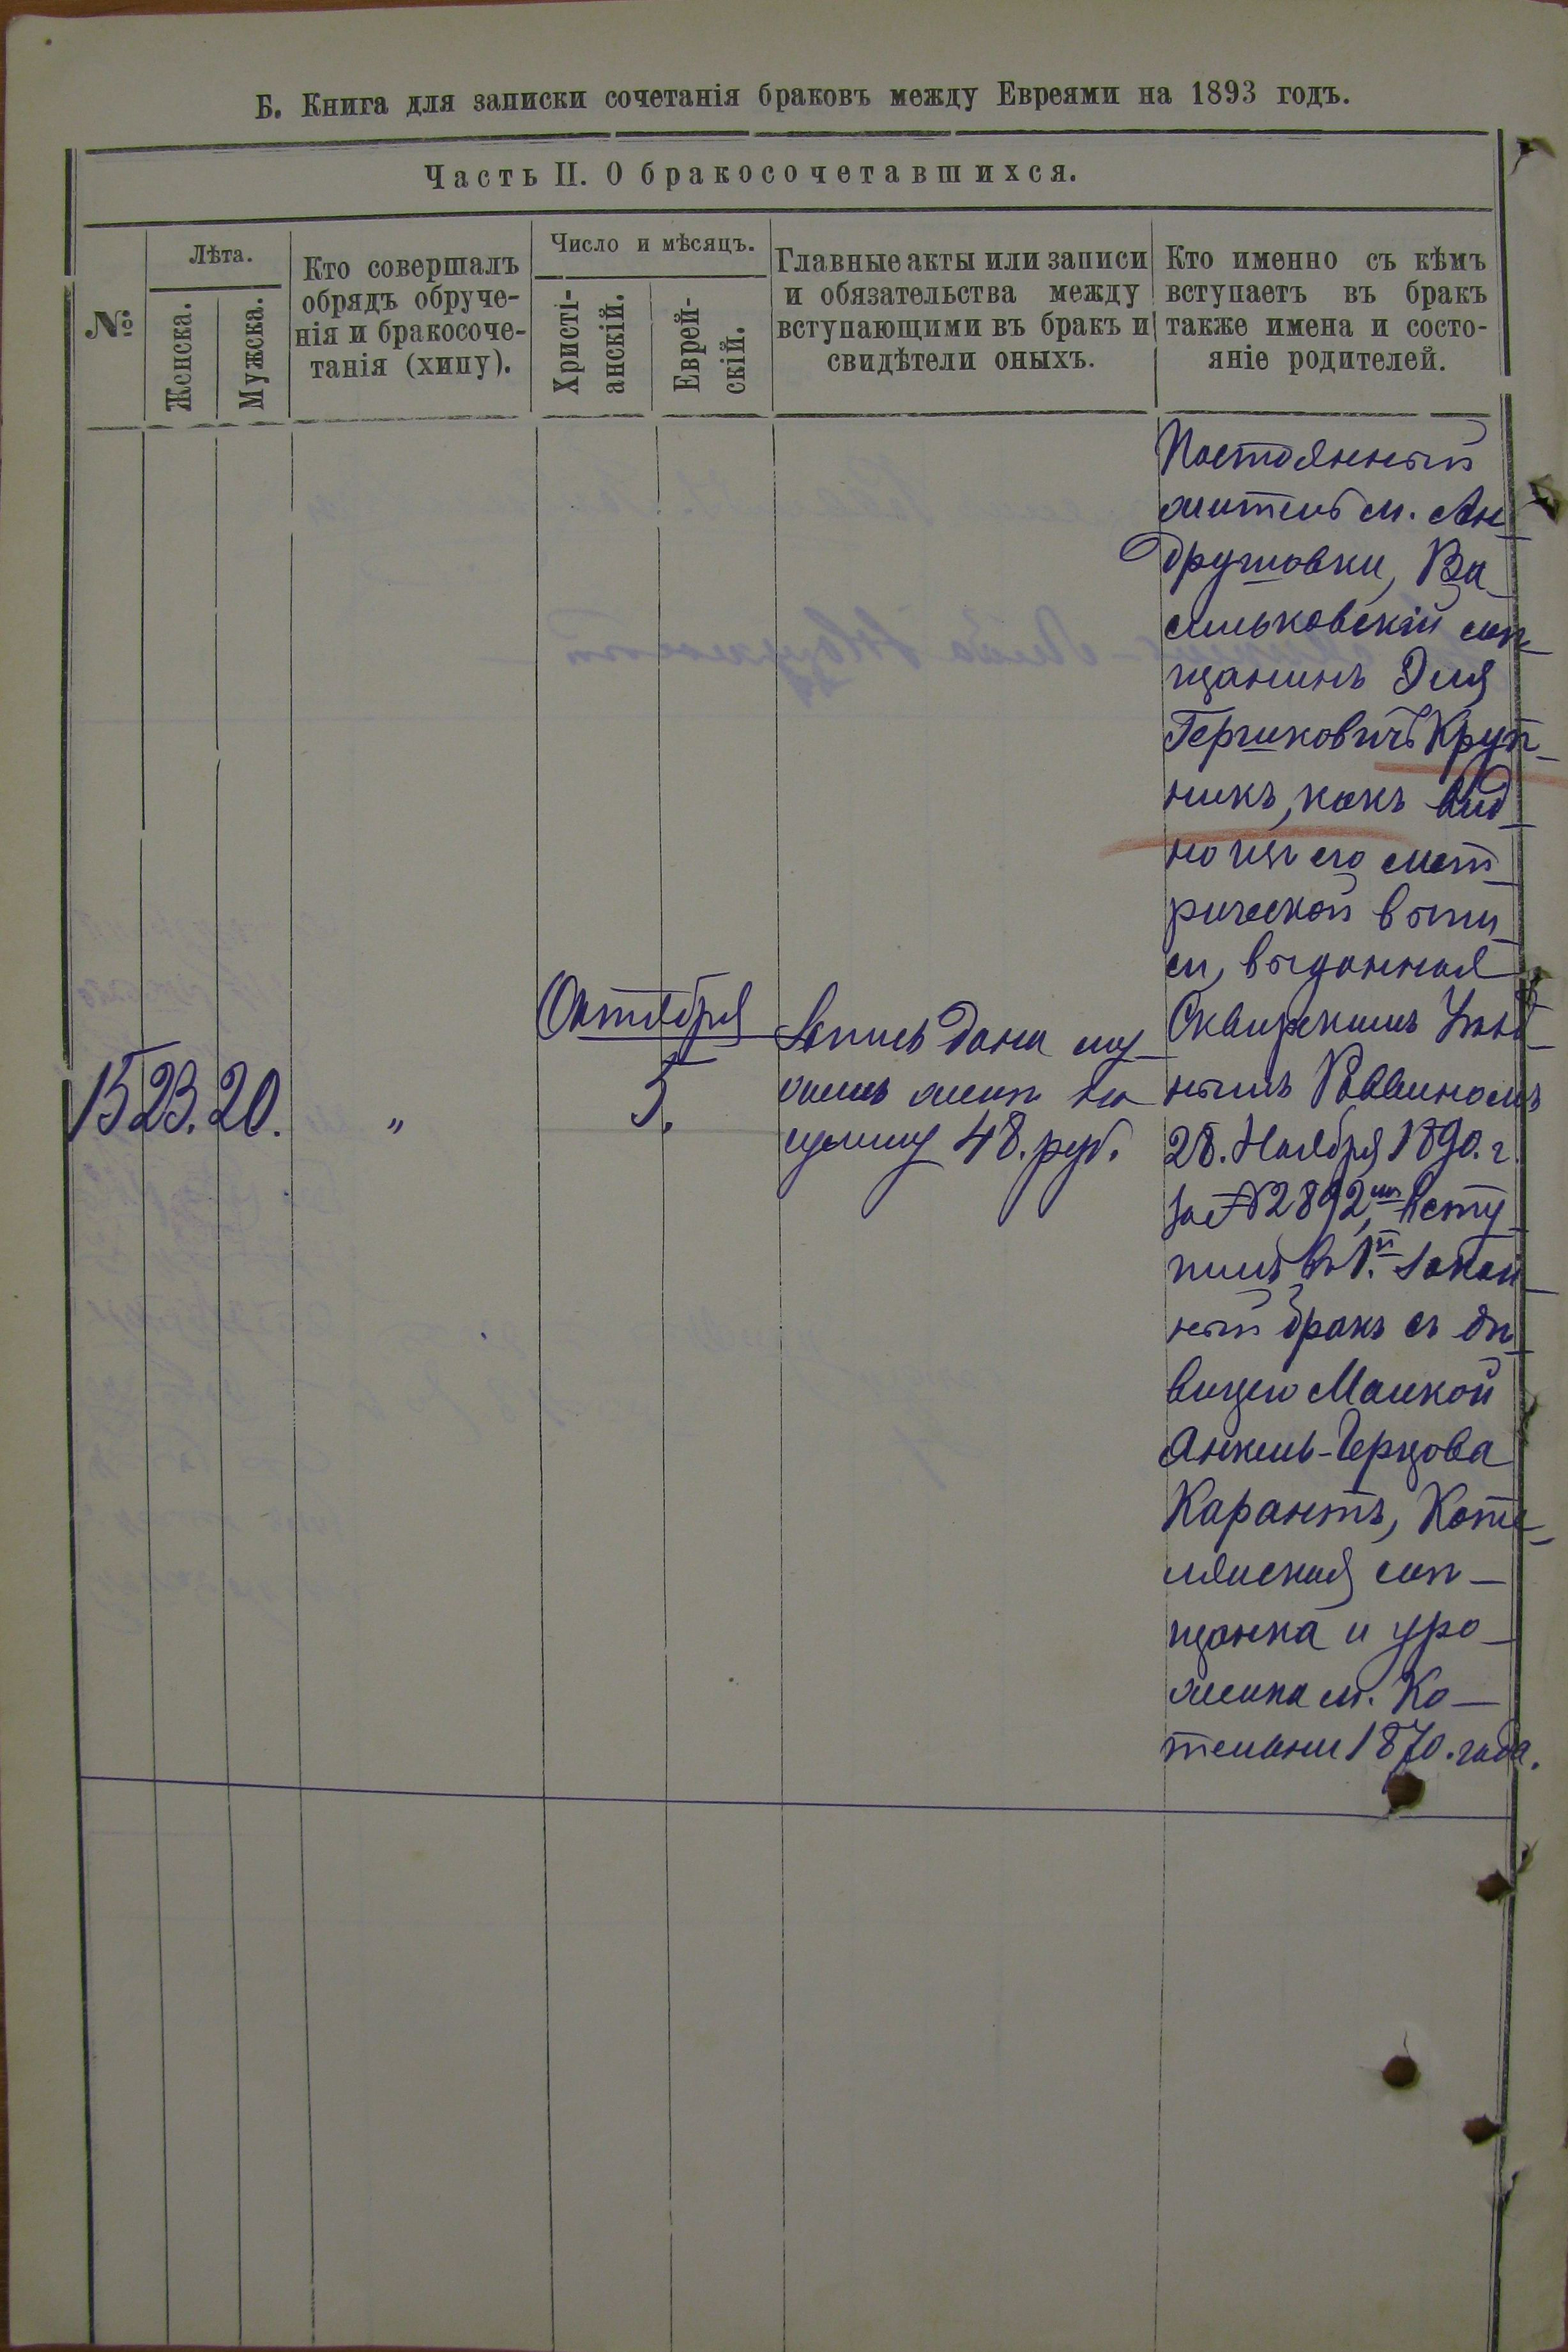 Б. Книга для записки сочетанія браковъ между Евреями на 1893 годъ.
Часть II. О бракосочетавшихся.
№
Лѣта.
Женска.
Мужска.
Кто совершалъ
обрядъ обруче-
нія и бракосоче-
танія (хипу).
Число и мѣсяцъ.
Христі-
анскій.
Еврей-
скій.
Главные акты или записи
и обязательства между
вступающими въ бракъ и
свидѣтели оныхъ.
Кто именно съ кѣмъ
вступаетъ въ бракъ
также имена и состо-
яніе родителей.
15
23.
20.
"
Октября
5.
Запись дана му-
жемъ женѣ на
сумму 48. руб.
Постоянный
житель м. Ан-
друшовки, Ва-
сильковскій мѣ-
щанинъ Эля
Гершковичъ Круп-
никъ, какъ вид-
но изъ его мет-
рической выпи-
си, выданная
Сквирскимъ Уѣзд-
нымъ Раввиномъ
28. Ноября 1890. г.
за № 2892, всту-
пилъ въ 1.й закон-
ный бракъ съ дѣ-
вицею Малкой
Анкель-Герцова
Карантъ, Коте-
лянская мѣ-
щанка и уро-
женка м. Ко-
тельни 1870. года.